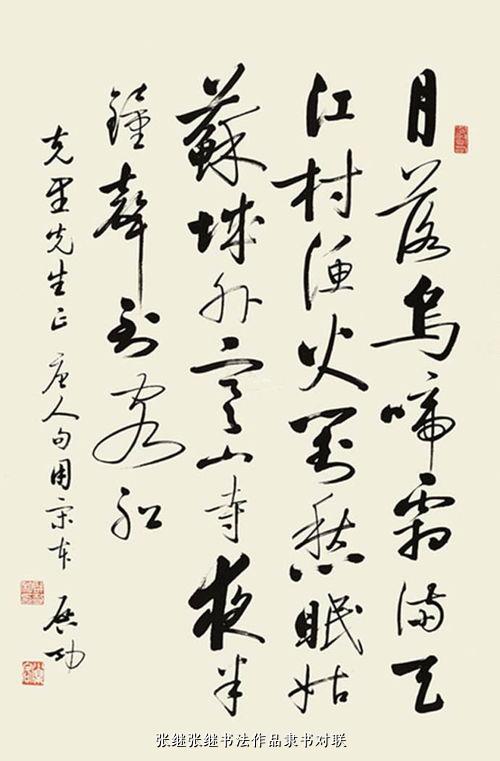 月落烏啼霜滿天
江村漁火對愁眠姑
蘇城外寒山寺夜半
鐘聲到客船
先生正 唐人句用宋本 啟功
张继张继书法作品隶书对联